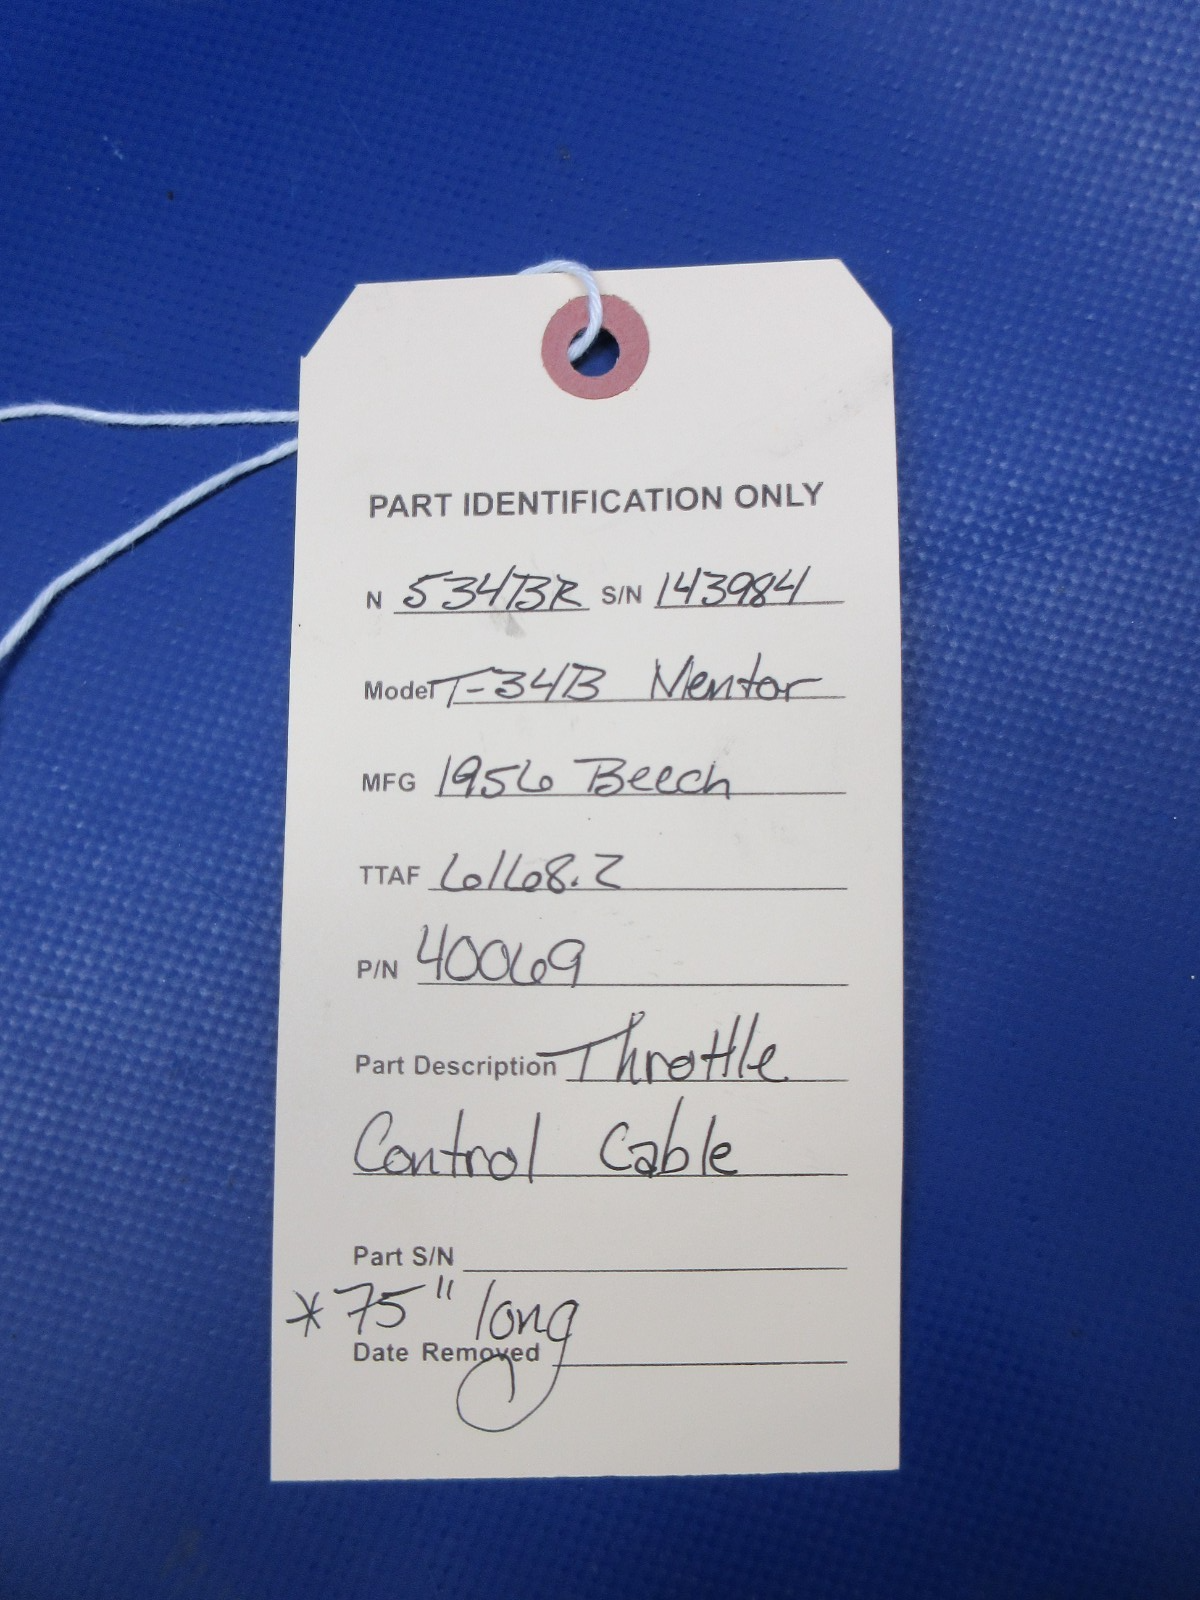 PART IDENTIFICATION ONLY
N 534BR S/N 143984
Model T-34B Mentor
MFG 1956 Beech
TTAF 6168.2
P/N 40069
Part Description Throttle
Control Cable
Part S/N
*75" long
Date Removed